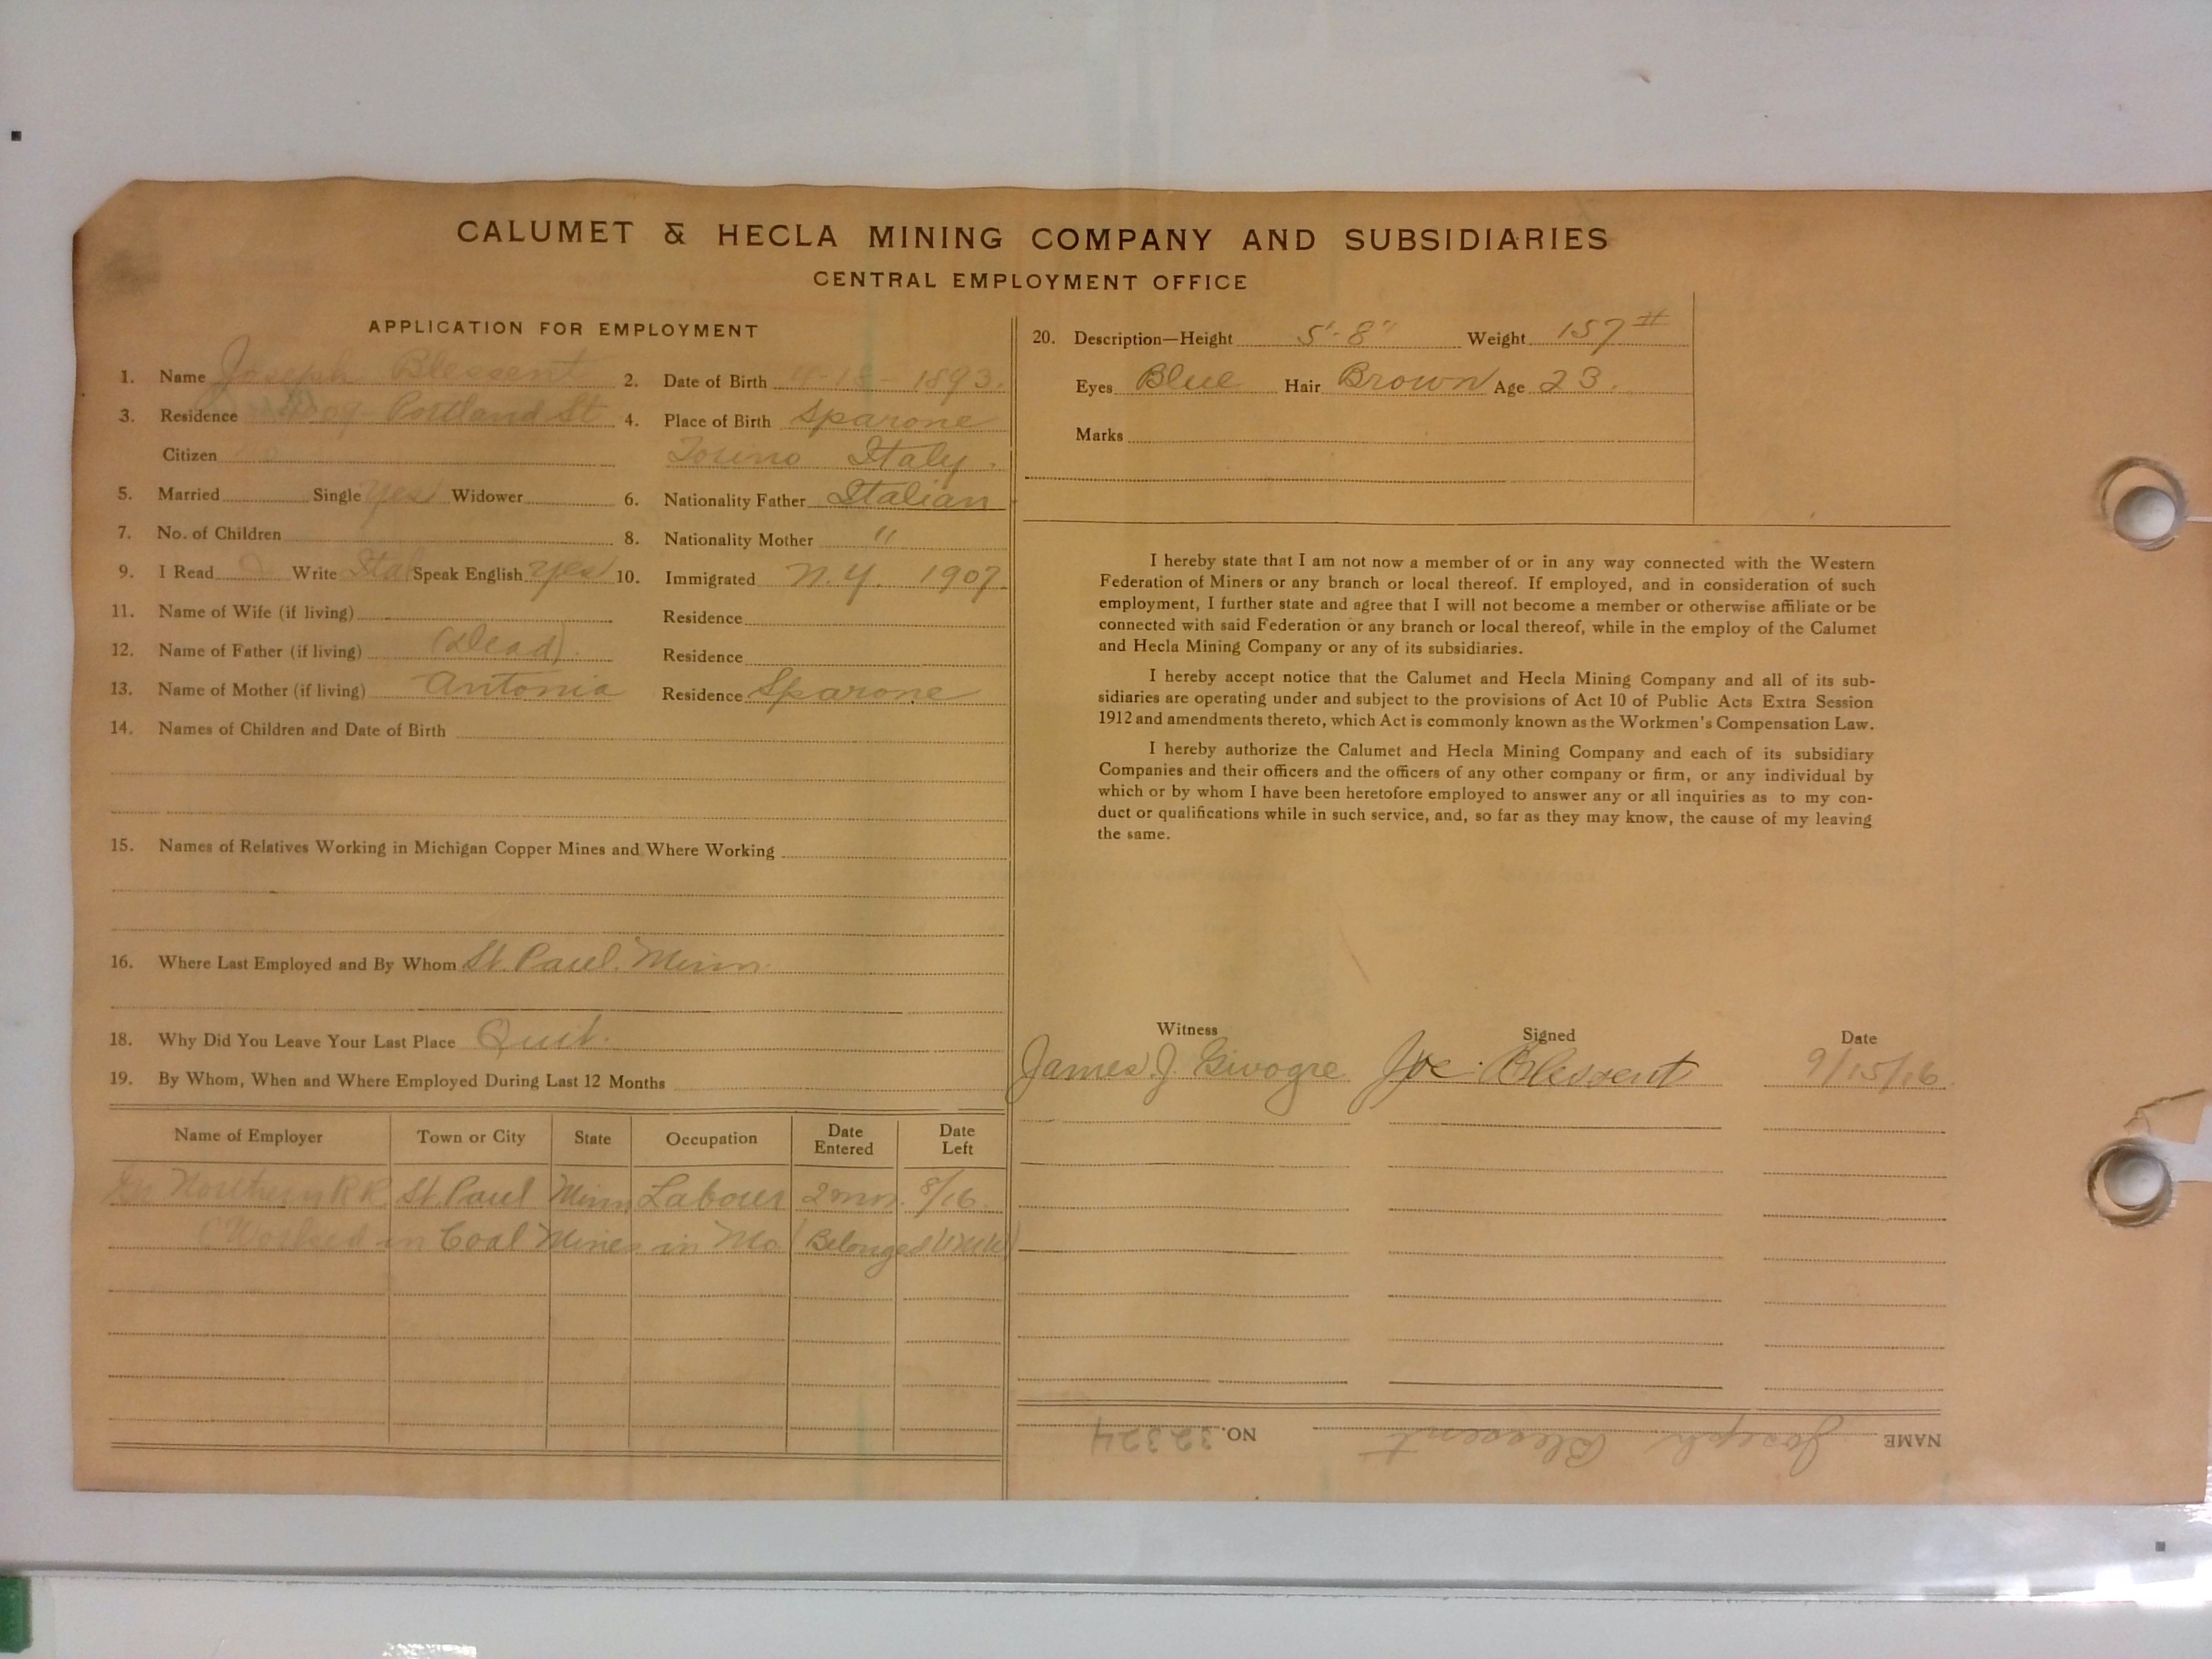 CALUMET & HECLA MINING COMPANY AND SUBSIDIARIES
CENTRAL EMPLOYMENT OFFICE
APPLICATION FOR EMPLOYMENT
1. Name Joseph Blessent 2. Date of Birth 1893.
3. Residence Portland St 4. Place of Birth Sparone
Citizen Torino Italy.
5. Married Single Yes Widower 6. Nationality Father Italian
7. No. of Children 8. Nationality Mother "
9. I Read Write Ital Speak English Yes 10. Immigrated N.Y. 1907.
11. Name of Wife (if living) Residence
12. Name of Father (if living) (Dead). Residence
13. Name of Mother (if living) Antonia Residence Sparone
14. Names of Children and Date of Birth
15. Names of Relatives Working in Michigan Copper Mines and Where Working
16. Where Last Employed and By Whom St. Paul. Minn.
18. Why Did You Leave Your Last Place Quit.
19. By Whom, When and Where Employed During Last 12 Months
Name of Employer Town or City State Occupation Date Entered Date Left
Northern RR St. Paul Minn Labour 2 mos. 8/16.
(Worked in Coal Mines in Mo. (Belonged
20. Description—Height 5'-8" Weight 157#
Eyes Blue Hair Brown Age 23.
Marks
I hereby state that I am not now a member of or in any way connected with the Western
Federation of Miners or any branch or local thereof. If employed, and in consideration of such
employment, I further state and agree that I will not become a member or otherwise affiliate or be
connected with said Federation or any branch or local thereof, while in the employ of the Calumet
and Hecla Mining Company or any of its subsidiaries.
I hereby accept notice that the Calumet and Hecla Mining Company and all of its sub-
sidiaries are operating under and subject to the provisions of Act 10 of Public Acts Extra Session
1912 and amendments thereto, which Act is commonly known as the Workmen's Compensation Law.
I hereby authorize the Calumet and Hecla Mining Company and each of its subsidiary
Companies and their officers and the officers of any other company or firm, or any individual by
which or by whom I have been heretofore employed to answer any or all inquiries as to my con-
duct or qualifications while in such service, and, so far as they may know, the cause of my leaving
the same.
Witness Signed Date
James J. Givogre Joe Blessent 9/15/16.
NAME Joseph Blessent NO. 32324